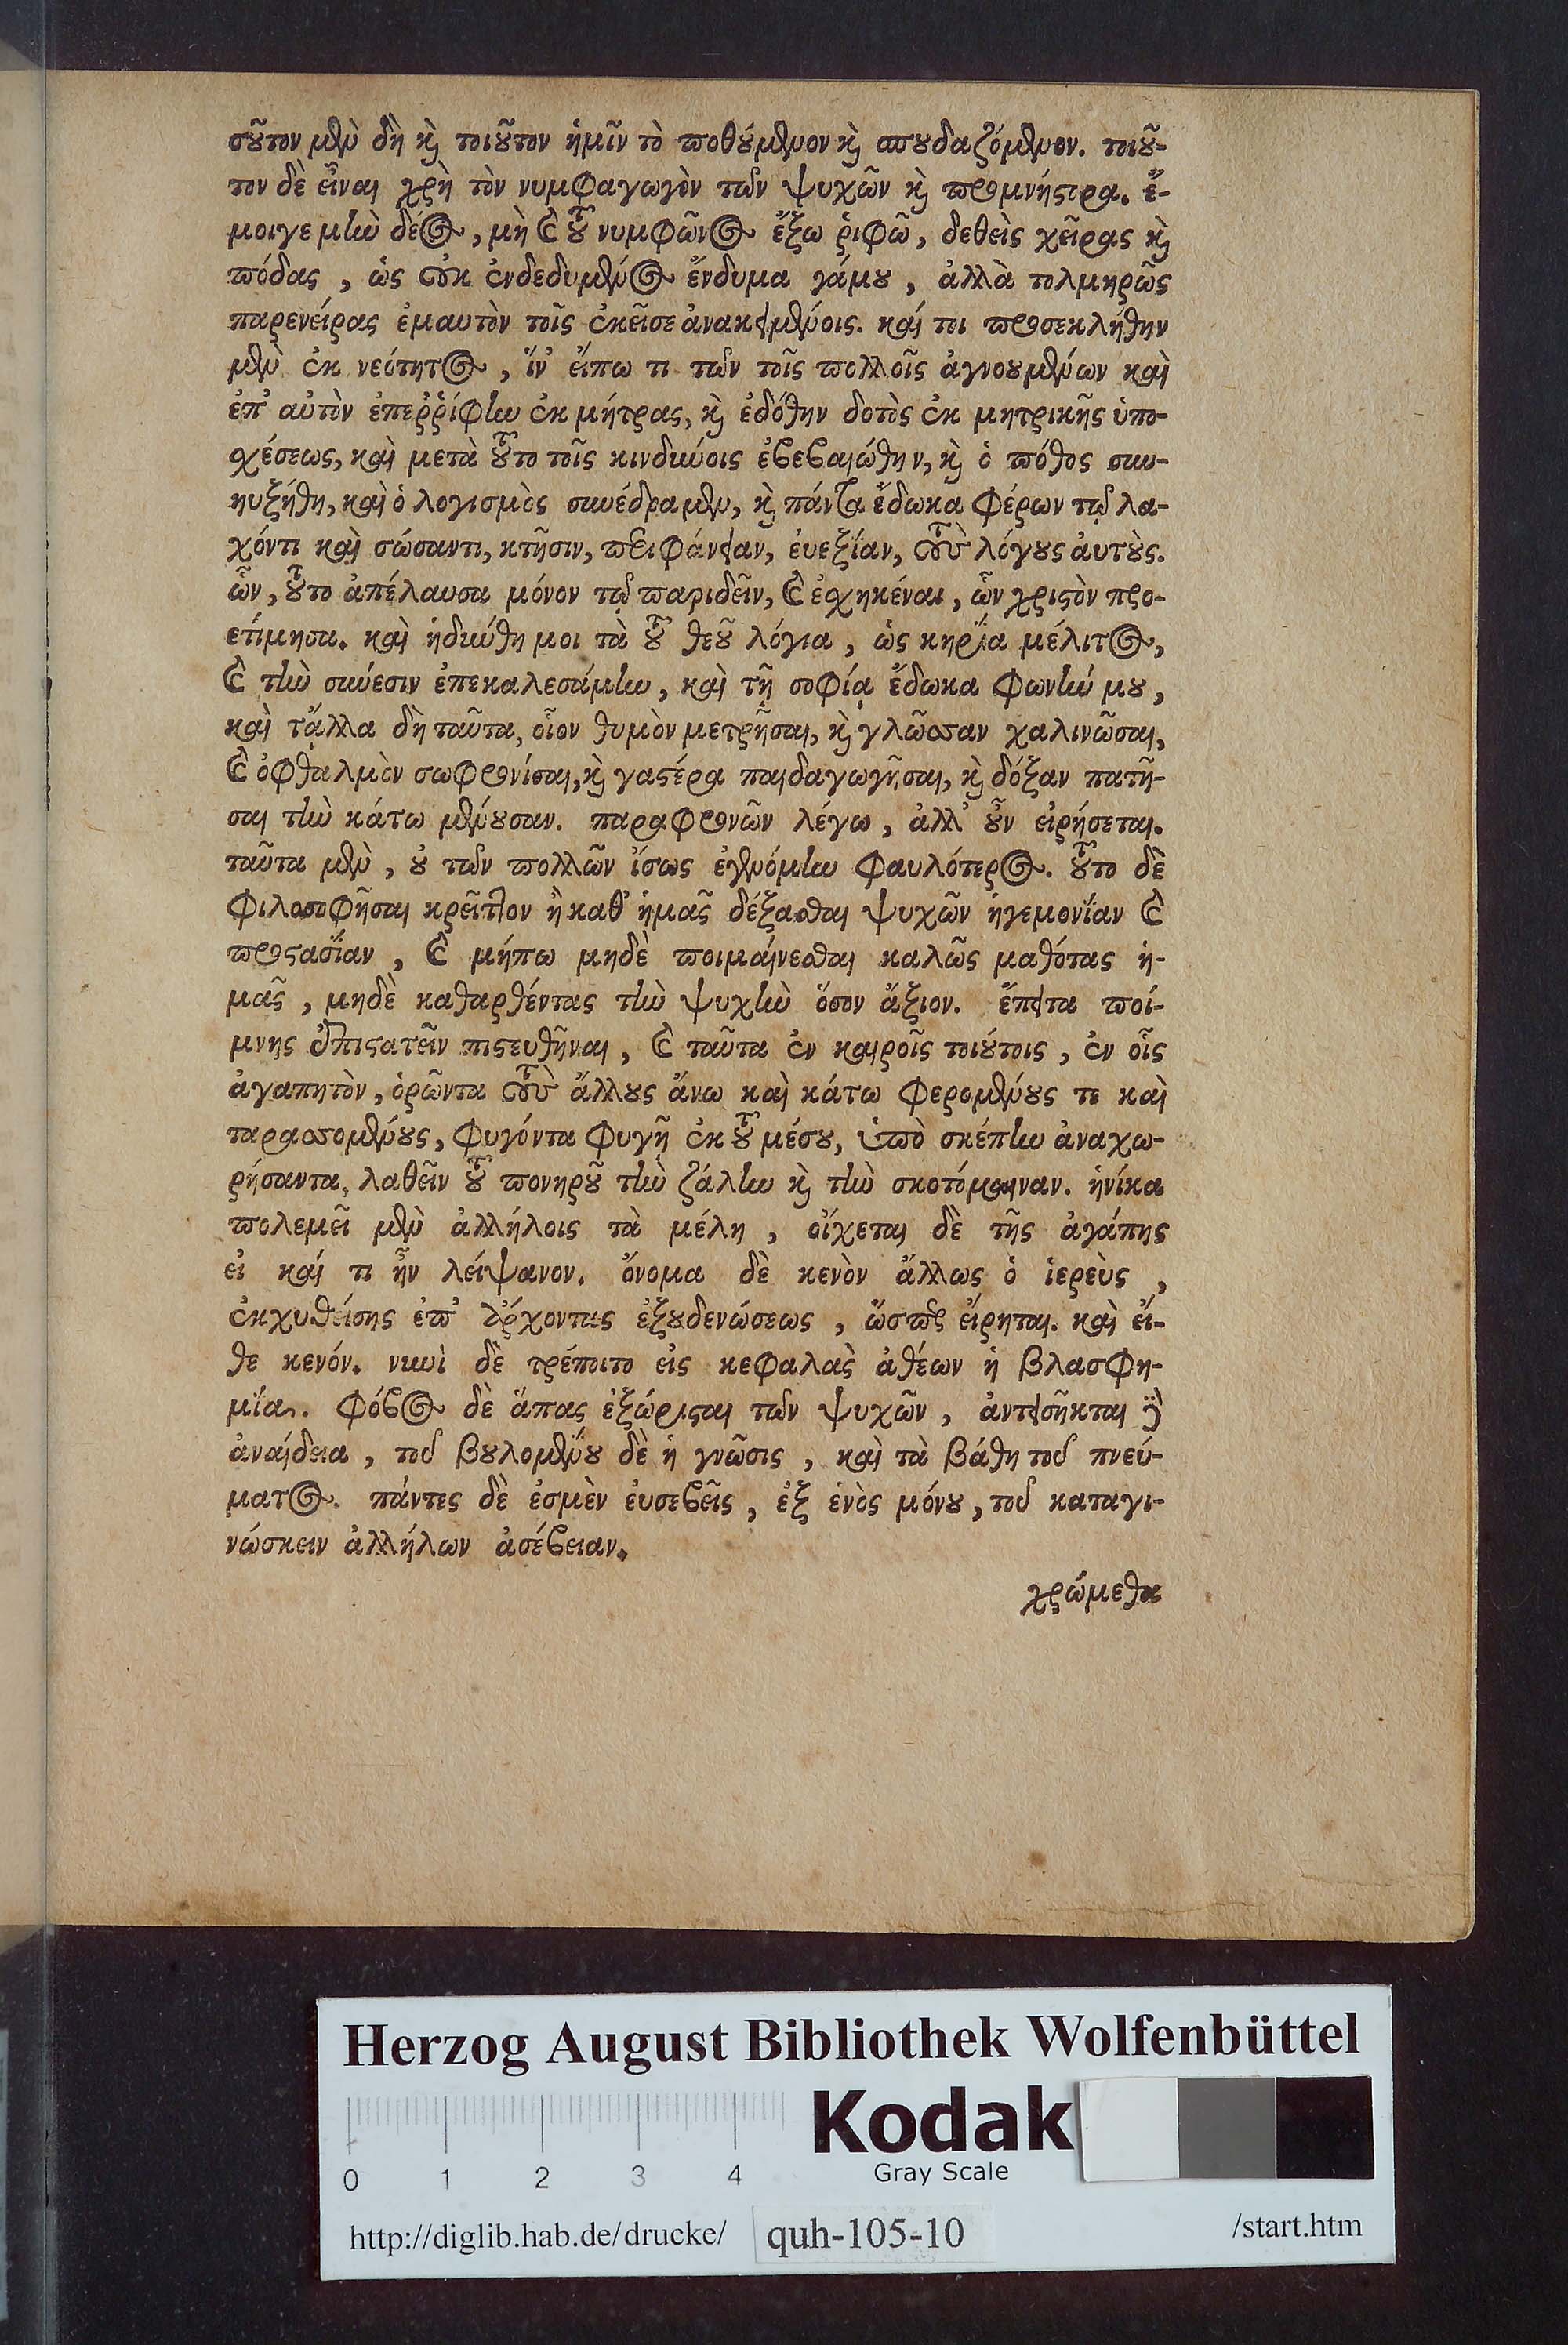 σοῦτον μὲν δὴ καὶ τοιοῦτον ἡμῖν τὸ ποθούμενον καὶ σπουδαζόμενον. τοιοῦ-
τον δὲ εἶναι χρὴ τὸν νυμφαγωγὸν τῶν ψυχῶν καὶ προμνήστρα. ἔ-
μοιγε μὴν δέος, μὴ καὶ τοῦ νυμφῶνος ἔξω ῥιφῶ, δεθεὶς χεῖρας καὶ
πόδας, ὡς οὐκ ἐνδεδυμένος ἔνδυμα γάμου, ἀλλὰ τολμηρῶς
παρενείρας ἐμαυτὸν τοῖς ἐκεῖσε ἀνακειμένοις. καί τοι προσεκλήθην
μὲν ἐκ νεότητος, ἵν' εἴπω τι τῶν τοῖς πολλοῖς ἀγνουμένων καὶ
ἐπ' αὐτὸν ἐπεῤῥίφην ἐκ μήτρας, καὶ ἐδόθην δοτὸς ἐκ μητρικῆς ὑπο-
σχέσεως, καὶ μετὰ τοῦτο τοῖς κινδύνοις ἐβεβαιώθην, καὶ ὁ πόθος συν-
ηυξήθη, καὶ ὁ λογισμὸς συνέδραμεν, καὶ πάντα ἔδωκα φέρων τῷ λα-
χόντι καὶ σώσαντι, κτῆσιν, περιφάνειαν, εὐεξίαν, τοὺς λόγους αὐτούς.
ὧν, τοῦτο ἀπέλαυσα μόνον τῷ παριδεῖν, καὶ ἐσχηκέναι, ὧν χριστὸν προ-
ετίμησα. καὶ ἡδύνθη μοι τὰ τοῦ θεοῦ λόγια, ὡς κηρία μέλιτος,
καὶ τὴν σύνεσιν ἐπεκαλεσάμην, καὶ τῇ σοφίᾳ ἔδωκα φωνήν μου,
καὶ τἄλλα δὴ ταῦτα, οἷον θυμὸν μετρῆσαι, καὶ γλῶσσαν χαλινῶσαι,
καὶ ὀφθαλμὸν σωφρονίσαι, καὶ γαστέρα παιδαγωγῆσαι, καὶ δόξαν πατῆ-
σαι τὴν κάτω μένουσαν. παραφρονῶν λέγω, ἀλλ' οὖν εἰρήσεται.
ταῦτα μὲν, οὐ τῶν πολλῶν ἴσως ἐγενόμην φαυλότερος. τοῦτο δὲ
φιλοσοφῆσαι κρεῖττον ἢ καθ' ἡμᾶς δέξασθαι ψυχῶν ἡγεμονίαν καὶ
προστασίαν, καὶ μήπω μηδὲ ποιμαίνεσθαι καλῶς μαθόντας ἡ-
μᾶς, μηδὲ καθαρθέντας τὴν ψυχὴν ὅσον ἄξιον. ἔπειτα ποί-
μνης ἐπιστατεῖν πιστευθῆναι, καὶ ταῦτα ἐν καιροῖς τοιούτοις, ἐν οἷς
ἀγαπητὸν, ὁρῶντα τοὺς ἄλλους ἄνω καὶ κάτω φερομένους τε καὶ
ταρασσομένους, φυγόντα φυγῇ ἐκ τοῦ μέσου, ὑπὸ σκέπην ἀναχω-
ρήσαντα, λαθεῖν τοῦ πονηροῦ τὴν ζάλην καὶ τὴν σκοτόμαιναν. ἡνίκα
πολεμεῖ μὲν ἀλλήλοις τὰ μέλη, οἴχεται δὲ τῆς ἀγάπης
εἰ καί τι ἦν λείψανον. ὄνομα δὲ κενὸν ἄλλως ὁ ἱερεὺς,
ἐκχυθείσης ἐπ' ἄρχοντας ἐξουδενώσεως, ὥσπερ εἴρηται. καὶ εἴ-
θε κενόν. νυνὶ δὲ τρέποιτο εἰς κεφαλὰς ἀθέων ἡ βλασφη-
μία. φόβος δὲ ἅπας ἐξώρισται τῶν ψυχῶν, ἀντεισῆκται δὲ
ἀναίδεια, τοῦ βουλομένου δὲ ἡ γνῶσις, καὶ τὰ βάθη τοῦ πνεύ-
ματος. πάντες δὲ ἐσμὲν εὐσεβεῖς, ἐξ ἑνὸς μόνου, τοῦ καταγι-
νώσκειν ἀλλήλων ἀσέβειαν.
χρώμεθα
Herzog August Bibliothek Wolfenbüttel
Kodak
Gray Scale
0 1 2 3 4
http://diglib.hab.de/drucke/ quh-105-10 /start.htm